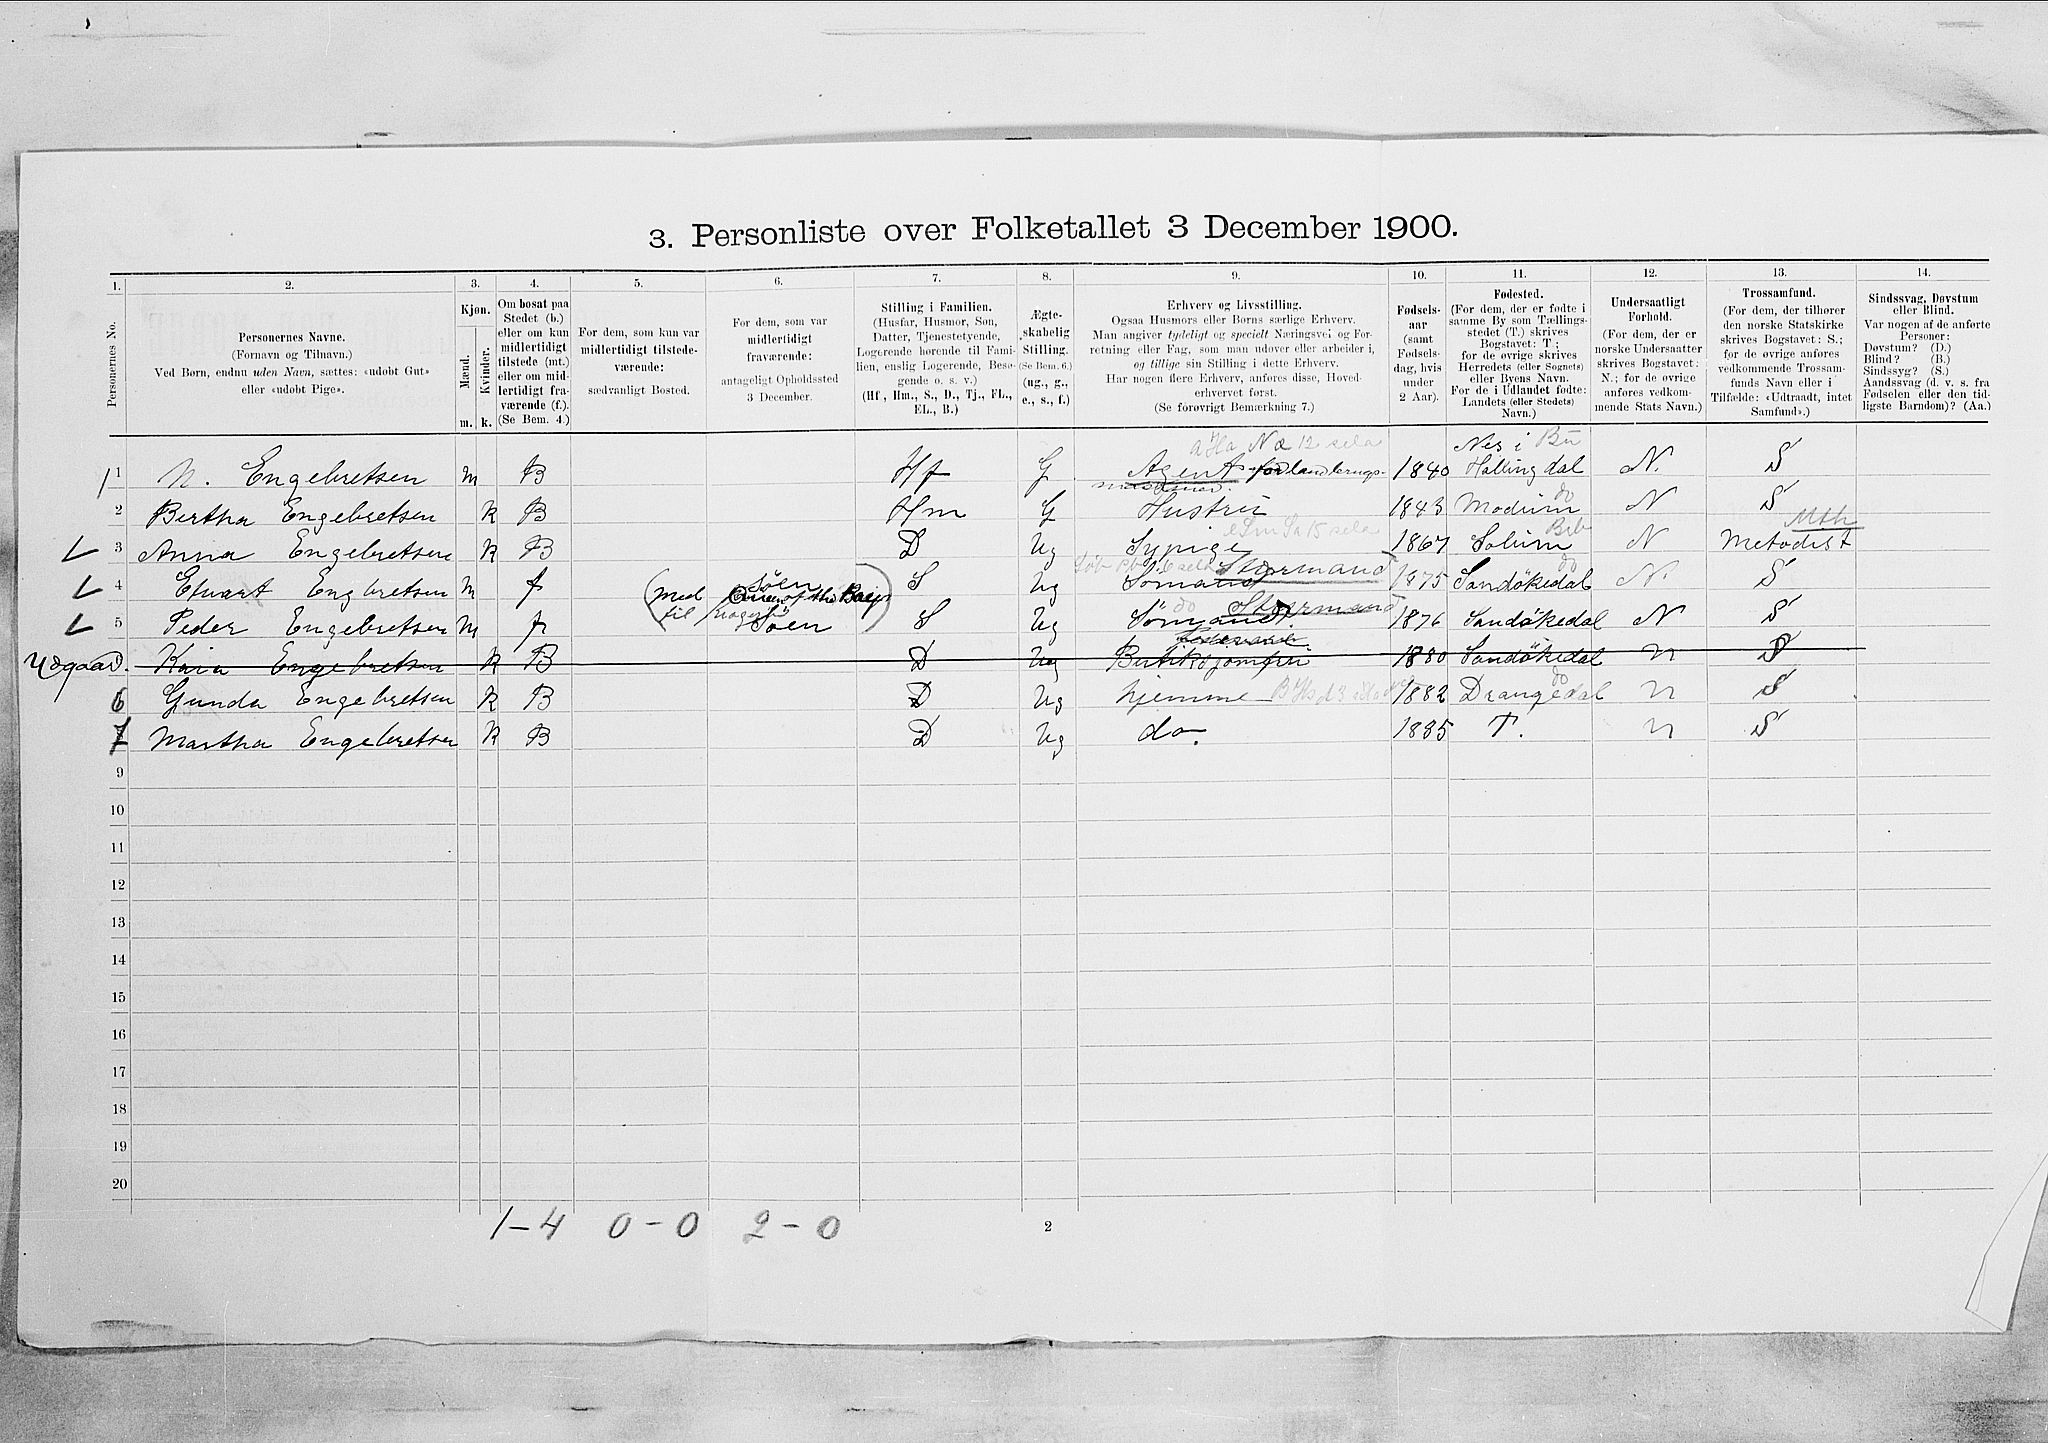 3. Personliste over Folketallet 3 December 1900.
1. 2. 3. 4. 5. 6. 7. 8. 9. 10. 11. 12. 13. 14.
Personernes No.
Personernes Navne.
(Fornavn og Tilnavn.)
Ved Børn, endnu uden Navn, sættes: «udøbt Gut»
eller «udøbt Pige».
Kjøn.
Mænd. Kvinder.
m. k.
Om bosat paa
Stedet (b.)
eller om kun
midlertidigt
tilstede (mt.)
eller om mid-
lertidigt fra-
værende (f.).
(Se Bem. 4.)
For dem, som kun var
midlertidigt tilstede-
værende:
sædvanligt Bosted.
For dem, som var
midlertidigt
fraværende:
antageligt Opholdssted
3 December.
Stilling i Familien.
(Husfar, Husmor, Søn,
Datter, Tjenestetyende,
Logerende hørende til Fami-
lien, enslig Logerende, Besø-
gende o. s. v.)
(Hf., Hm., S., D., Tj., FL.,
EL., B.)
Ægte-
skabelig
Stilling.
(Se Bem. 6.)
(ug., g.,
e., s., f.)
Erhverv og Livsstilling.
Ogsaa Husmors eller Børns særlige Erhverv.
Man angiver tydeligt og specielt Næringsvei og For-
retning eller Fag, som man udøver eller arbeider i,
og tillige sin Stilling i dette Erhverv.
Har nogen flere Erhverv, anføres disse, Hoved-
erhvervet først.
(Se forøvrigt Bemærkning 7.)
Fødsels-
aar
(samt
Fødsels-
dag, hvis
under
2 Aar).
Fødested.
(For dem, der er fødte i
samme By som Tællings-
stedet (T.) skrives
Bogstavet: T;
for de øvrige skrives
Herredets (eller Sognets)
eller Byens Navn.
For de i Udlandet fødte:
Landets (eller Stedets)
Navn.)
Undersaatligt
Forhold.
(For dem, der er
norske Undersaatter
skrives Bogstavet:
N.; for de øvrige
anføres vedkom-
mende Stats Navn.)
Trossamfund.
(For dem, der tilhører
den norske Statskirke
skrives Bogstavet: S.;
for de øvrige anføres
vedkommende Trossam-
funds Navn eller i
Tilfælde: «Udtraadt, intet
Samfund».)
Sindssvag, Døvstum
eller Blind.
Var nogen af de anførte
Personer:
Døvstum? (D.)
Blind? (B.)
Sindssyg? (S.)
Aandssvag (d. v. s. fra
Fødselen eller den tid-
ligste Barndom)? (Aa.)
1 N. Engebretsen m B Hf G Agent for landbrugs- 1840 Nes i Hallingdal N. S
2 Bertha Engebretsen k B Hm G Hustru 1843 Modum do N S
3 Anna Engebretsen k B D Ug Sypige 1867 Solum Brb N Metodist Mth
4 Edvart Engbretsen m f (med Søen S Ug Sømand Styrmand 1875 Sandökedal do N. S
5 Peder Engebretsen m f til Søen) S Ug Sömand do Styrmand 1876 Sandökedal N S
Kaia Engebretsen k B D Ug Butiksjomfru 1880 Sandökedal N S
6 Gunda Engebretsen k B D Ug hjemme 1882 Drangedal do N S
7 Martha Engebretsen k B D Ug do. 1885 T. N S
9
10
11
12
13
14
15
16
17
18
19
20
1-4 0-0 2-0
2